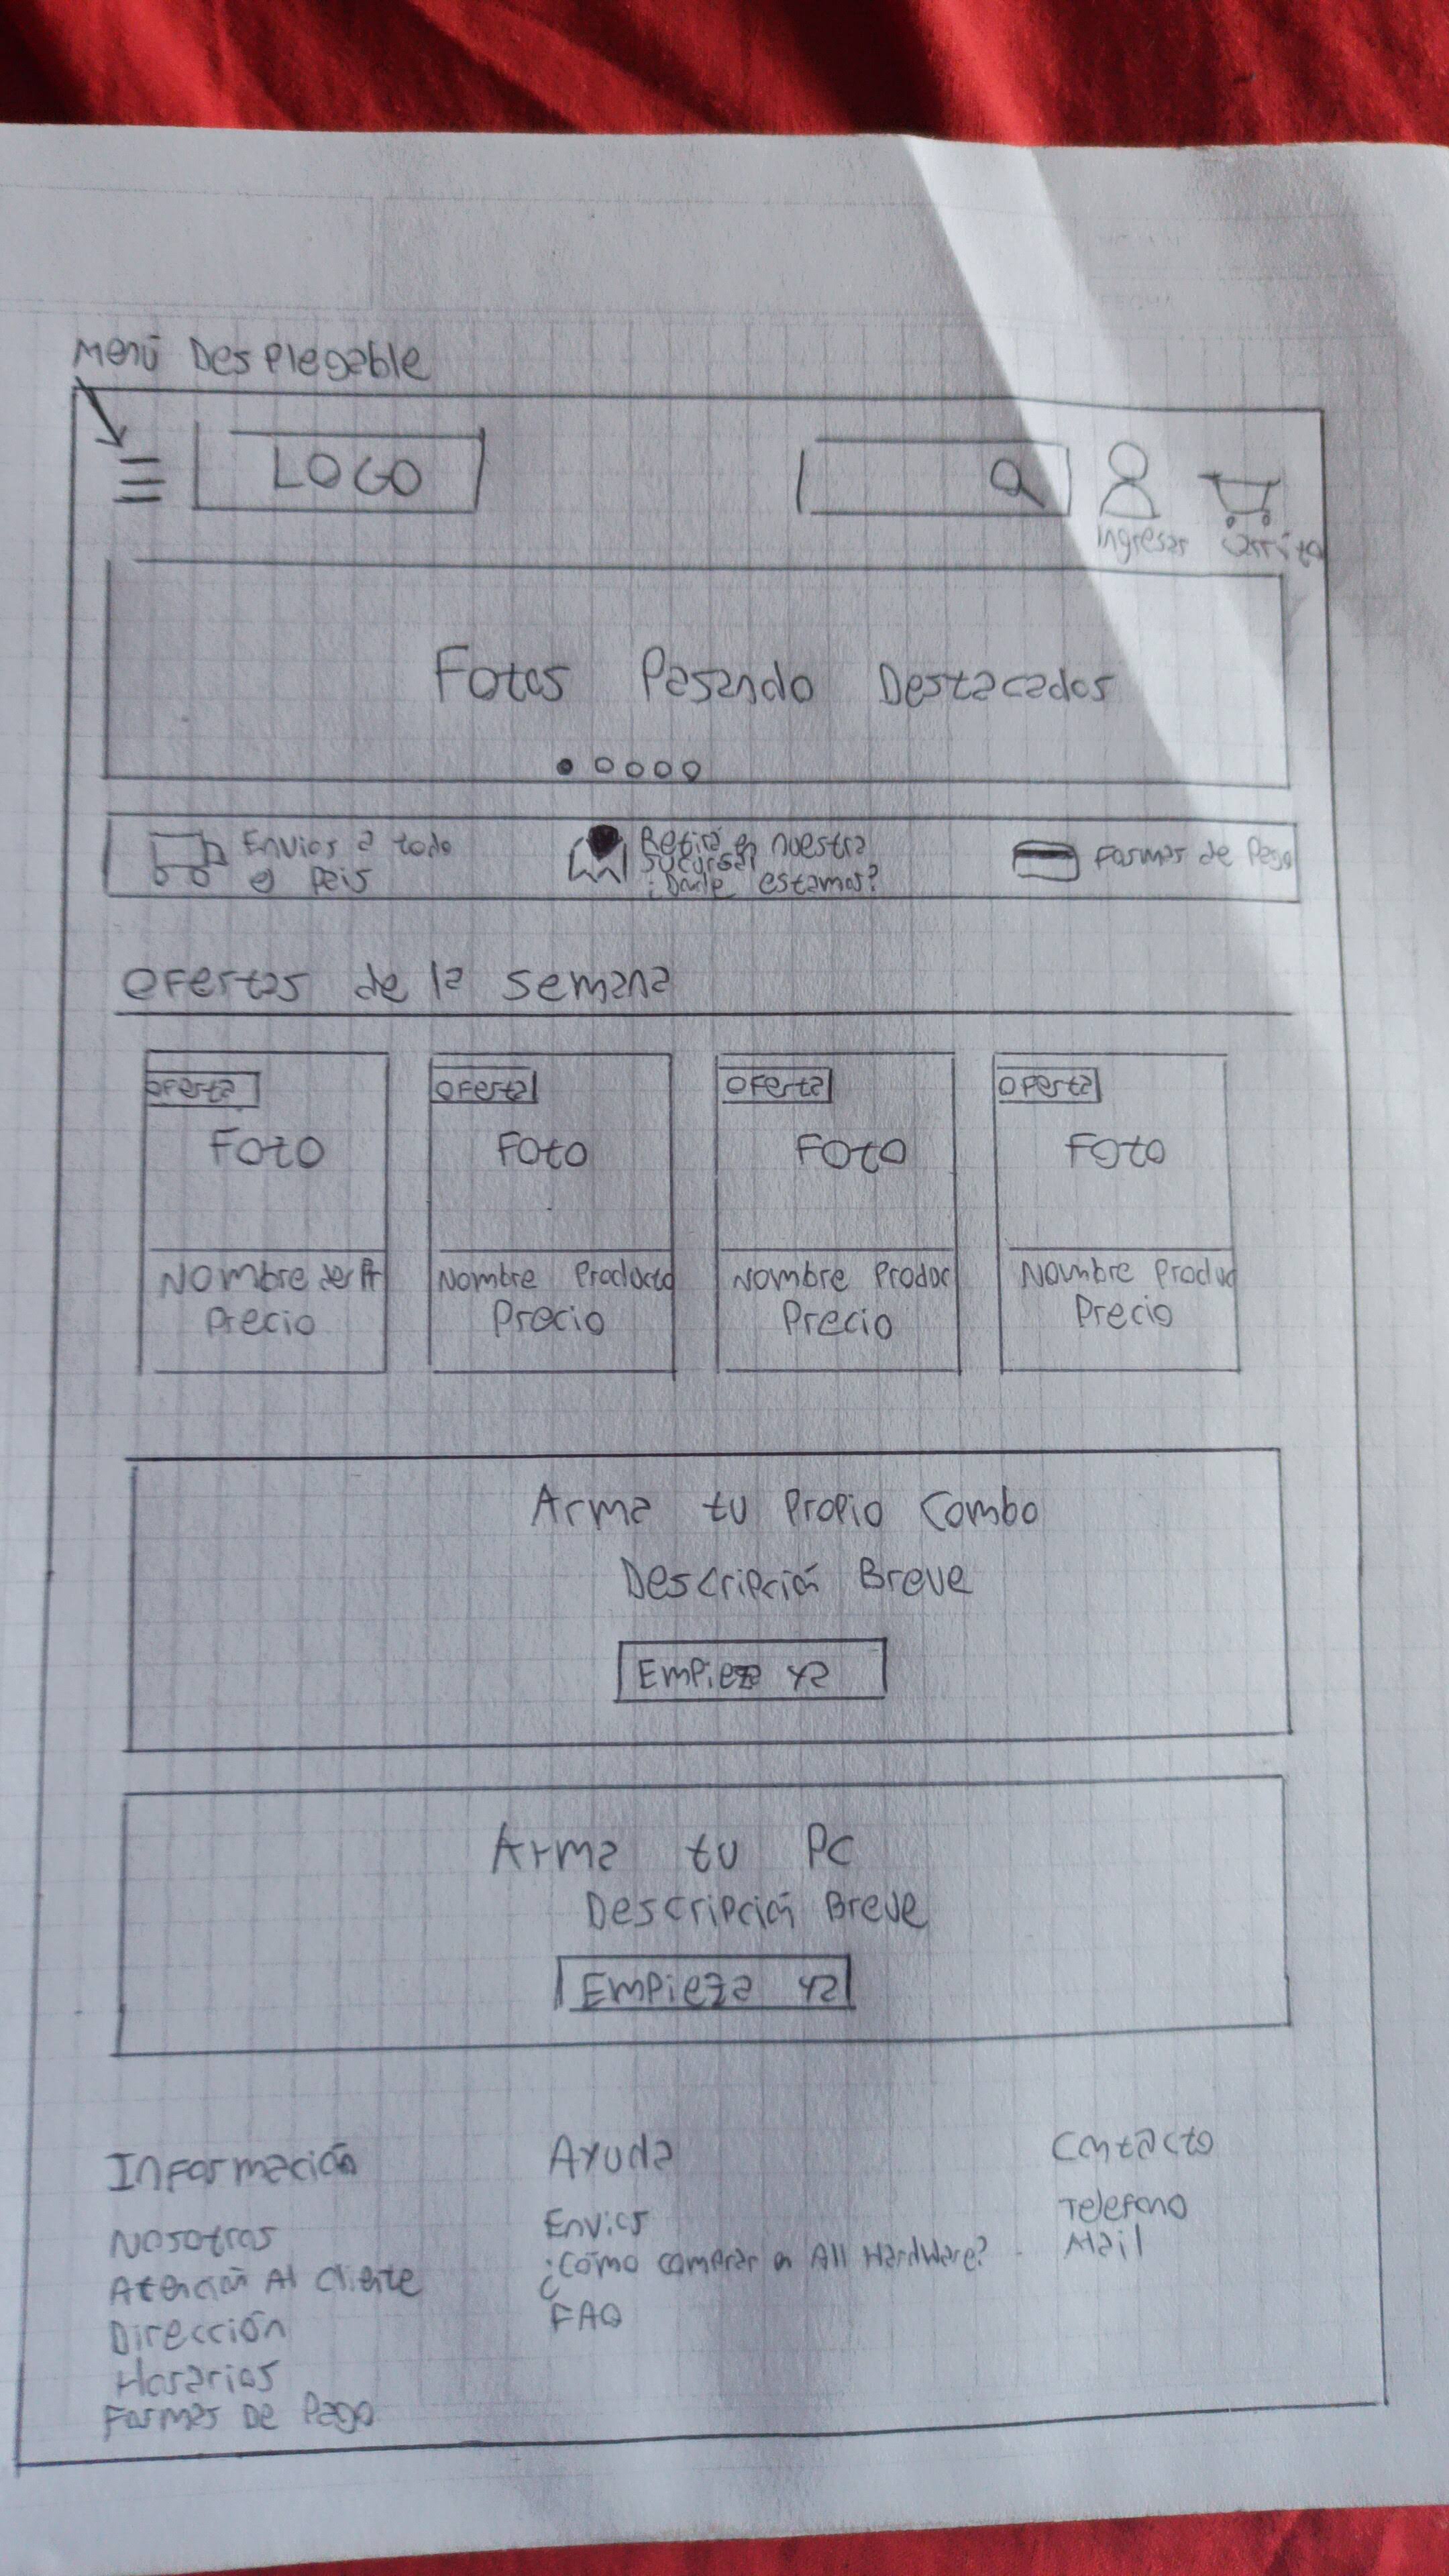 Menú Desplegable
LOGO
Ingresar Carrito
Fotos Pasando Destacados
Envios a todo
el Pais
Retirá en nuestra
sucursal
¿Donde estamos?
Formas de Pago
Ofertas de la semana
Oferta Oferta Oferta Oferta
Foto Foto Foto Foto
Nombre del Pr Nombre Producto Nombre Produc Nombre Produc
Precio Precio Precio Precio
Arma tu Propio Combo
Descripción Breve
Empieza ya
Arma tu PC
Descripción Breve
Empieza ya
Información
Nosotros
Atención Al Cliente
Dirección
Horarios
Formas De Pago
Ayuda
Envios
¿Cómo comprar en All Hardware?
¿
FAQ
Contacto
Telefono
Mail